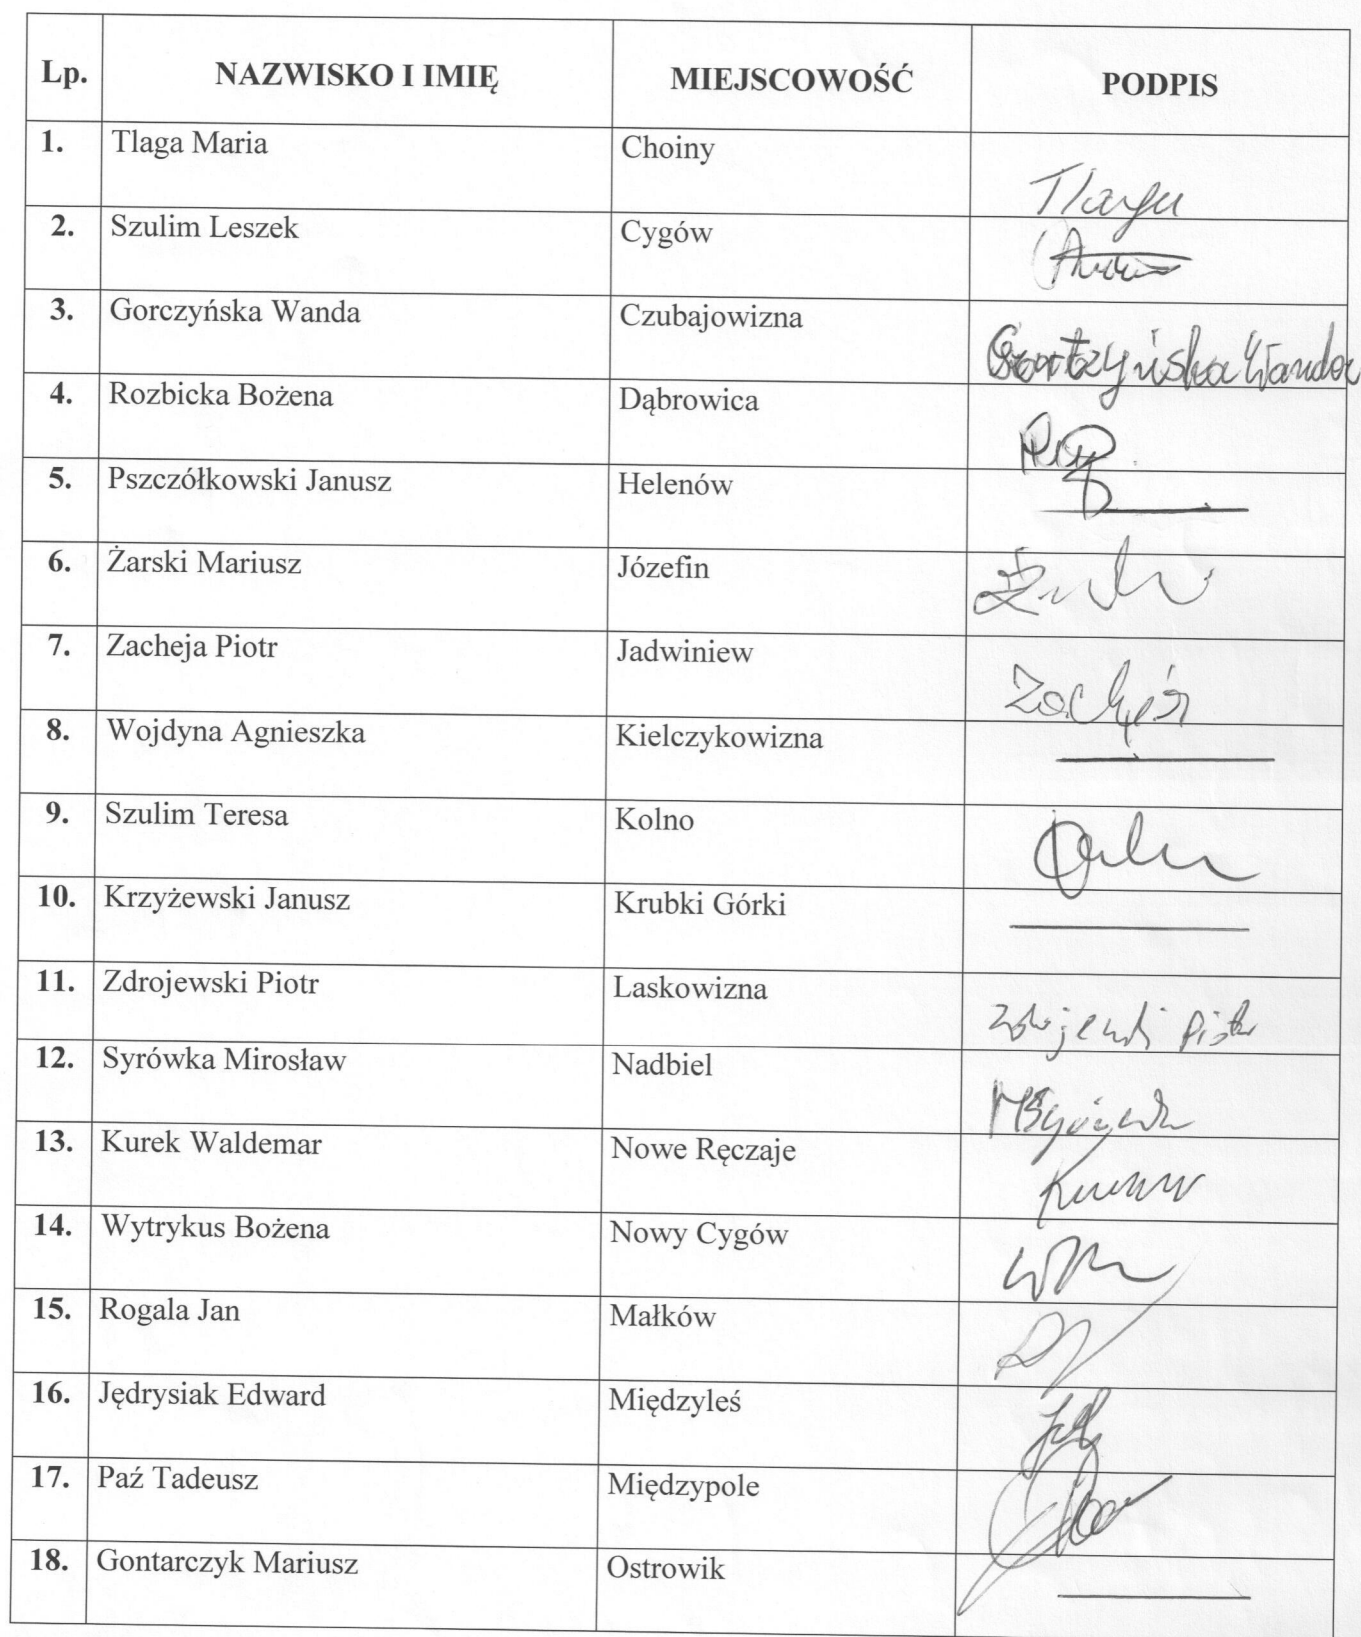 Lp. NAZWISKO I IMIĘ MIEJSCOWOŚĆ PODPIS
1. Tlaga Maria Choiny Tlaga
2. Szulim Leszek Cygów
3. Gorczyńska Wanda Czubajowizna Gorczyńska Wanda
4. Rozbicka Bożena Dąbrowica
5. Pszczółkowski Janusz Helenów
6. Żarski Mariusz Józefin
7. Zacheja Piotr Jadwiniew Zacheja
8. Wojdyna Agnieszka Kielczykowizna
9. Szulim Teresa Kolno
10. Krzyżewski Janusz Krubki Górki
11. Zdrojewski Piotr Laskowizna Zdrojewski Piotr
12. Syrówka Mirosław Nadbiel
13. Kurek Waldemar Nowe Ręczaje
14. Wytrykus Bożena Nowy Cygów
15. Rogala Jan Małków
16. Jędrysiak Edward Międzyleś
17. Paź Tadeusz Międzypole
18. Gontarczyk Mariusz Ostrowik